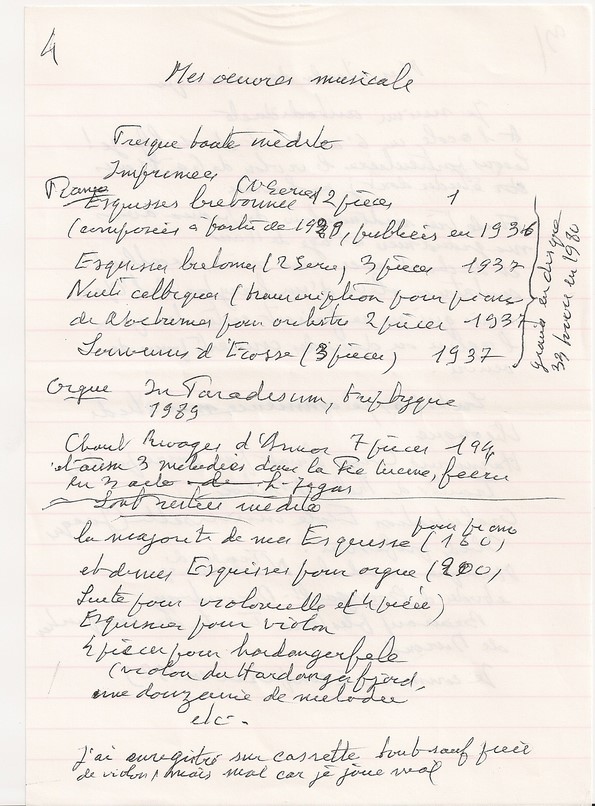 4
Mes oeuvres musicale
Presque toute inédite
Imprimées
Piano Esquisses bretonnes (1e Serie) 2 pièces 1
(composées à partir de 1929, publiées en 1936
Esquisses bretonnes (2 Serie, 3 pièces 1937
Nuits celtiques (transcription pour piano
de Nocturnes pour orchestre 2 pièces 1937
Souvenirs d'Ecosse (3 pièces) 1937
gravés en disque
33 tours en 1980
Orgue In Paradisum, tryptyque
1989
Chant Rivages d'Armor 7 pièces 194
et aussi 3 mélodies dans la Fée , féerie
en 3 acte de
Sont restées inédite
la majorité de mes Esquisse pour piano (160)
et de mes Esquisses pour orgue (200)
Suite pour violoncelle et 4 pièce)
Esquisses pour violon
4 pièces pour hardangerfele
(violon du Hardangerfjord,
une douzaine de mélodie
etc.
J'ai enregistré sur cassette tout sauf pièce
de violon, mais mal car je joue mal